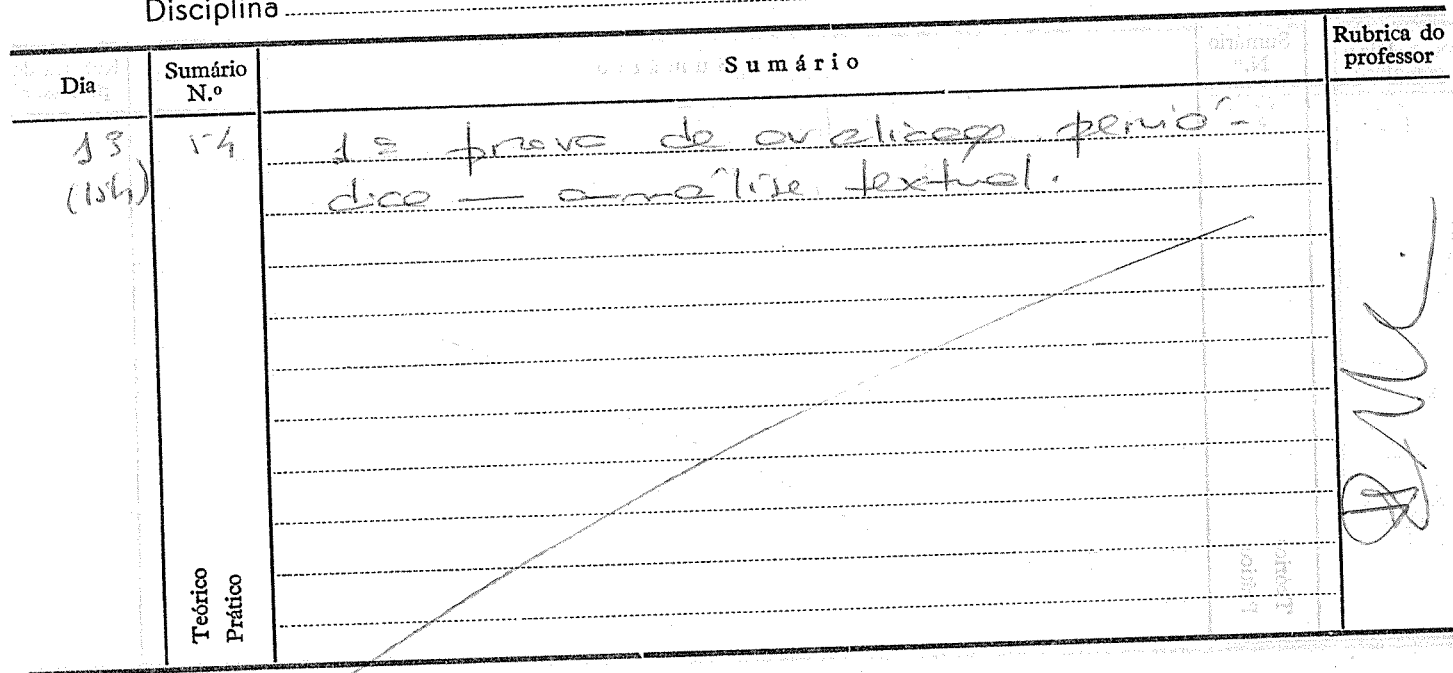 Disciplina
Dia
Sumário N.º
Sumário
Rubrica do professor
13
(15h)
54
1ª prova de avaliação perió-
dica — análise textual.
Teórico
Prático